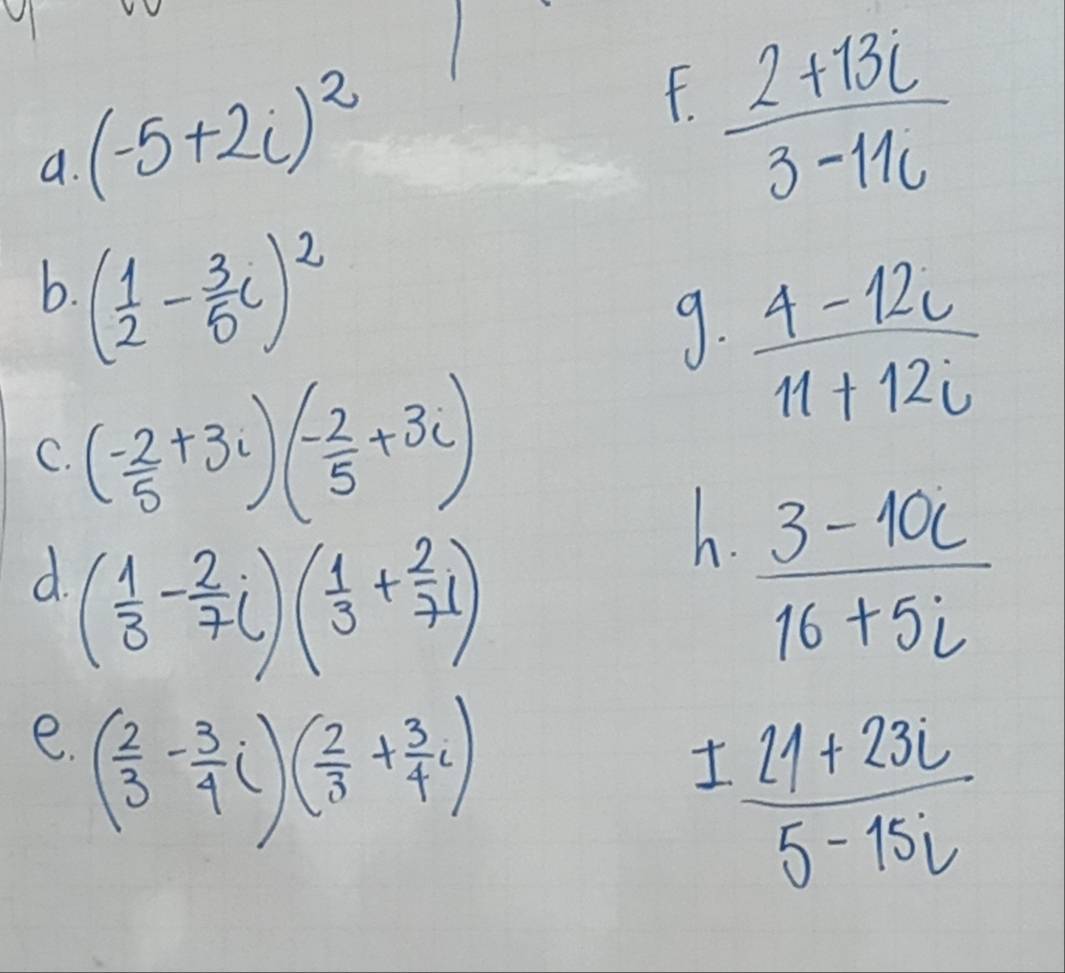 a. (-5+2i)²
b. (1/2 - 3/5 i)²
c. (-2/5 + 3i)(-2/5 + 3i)
d. (1/3 - 2/7 i)(1/3 + 2/7 i)
e. (2/3 - 3/4 i)(2/3 + 3/4 i)
F. 2+13i
3-11i
g. 4-12i
11+12i
h. 3-10i
16+5i
I. 21+23i
5-15i